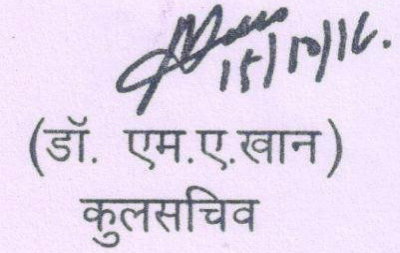 15/10/16.
(डॉ. एम.ए.खान)
कुलसचिव